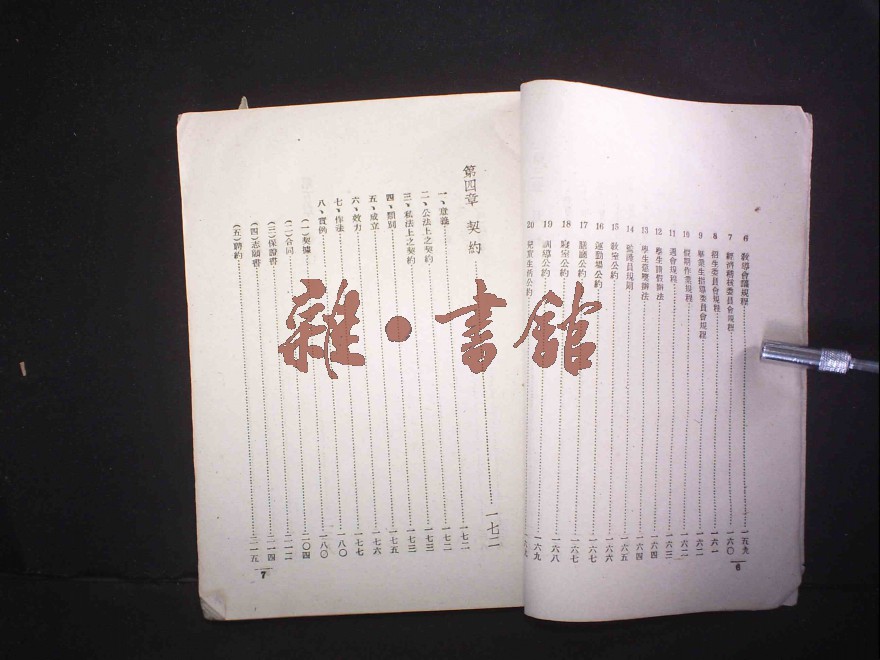 6 教導會議規程……一五九
7 經濟稽核委員會規程……一六〇
8 招生委員會規程……一六一
9 畢業生指導委員會規程……一六一
10 假期作業規程……一六二
11 週會規程……一六三
12 學生請假辦法……一六四
13 學生獎懲辦法……一六四
14 監護員規則……一六五
15 教室公約……一六六
16 運動場公約……一六七
17 膳廳公約……一六七
18 寢室公約……一六八
19 訓導公約……一六九
20 兒童生活公約
6
第四章 契約……一七二
一、意義……一七二
二、公法上之契約……一七三
三、私法上之契約……一七三
四、類別……一七五
五、成立……一七六
六、效力……一七七
七、作法……一八〇
八、實例……一八〇
(一)契據……二〇四
(二)合同……二一二
(三)保證書……二一四
(四)志願書……二一四
(五)聘約……二一五
7
雜·書館